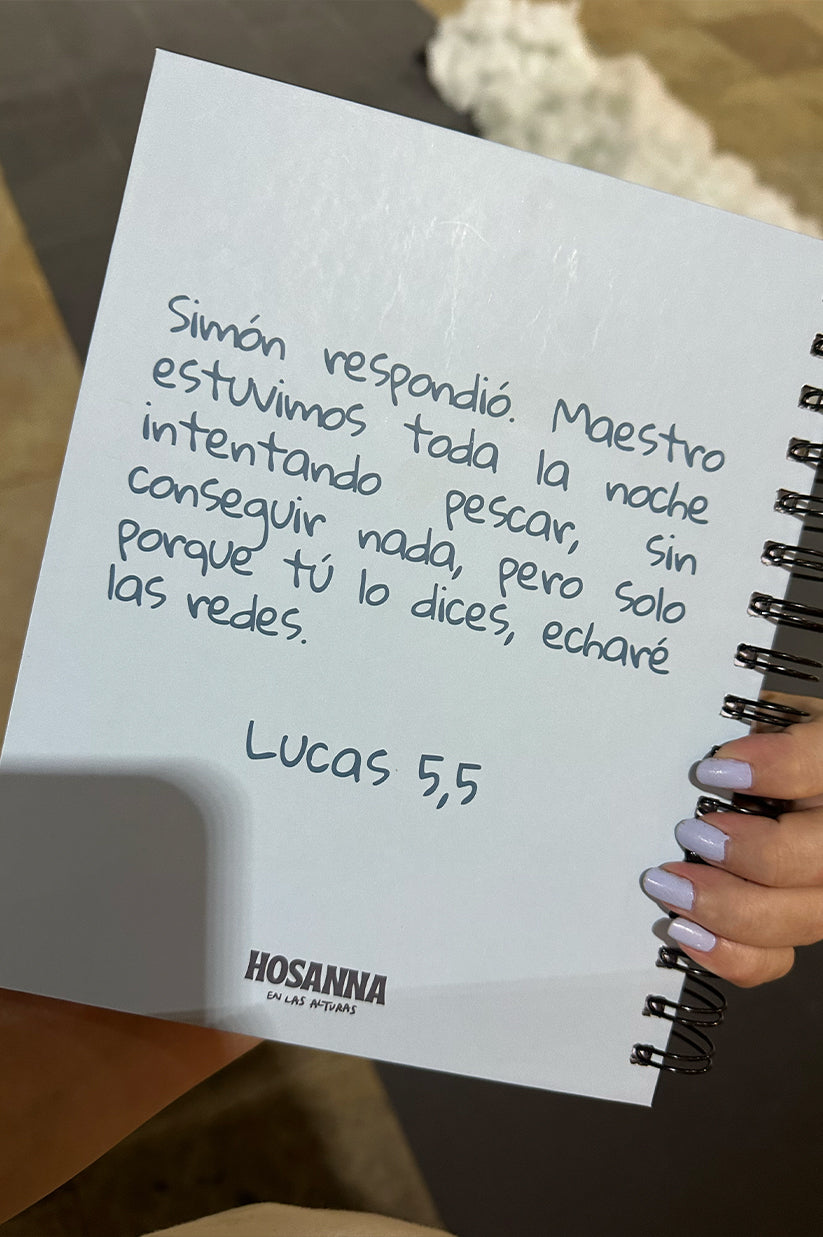 Simón respondió. Maestro
estuvimos toda la noche
intentando pescar, sin
conseguir nada, pero solo
porque tú lo dices, echaré
las redes.
Lucas 5,5
HOSANNA
EN LAS ALTURAS